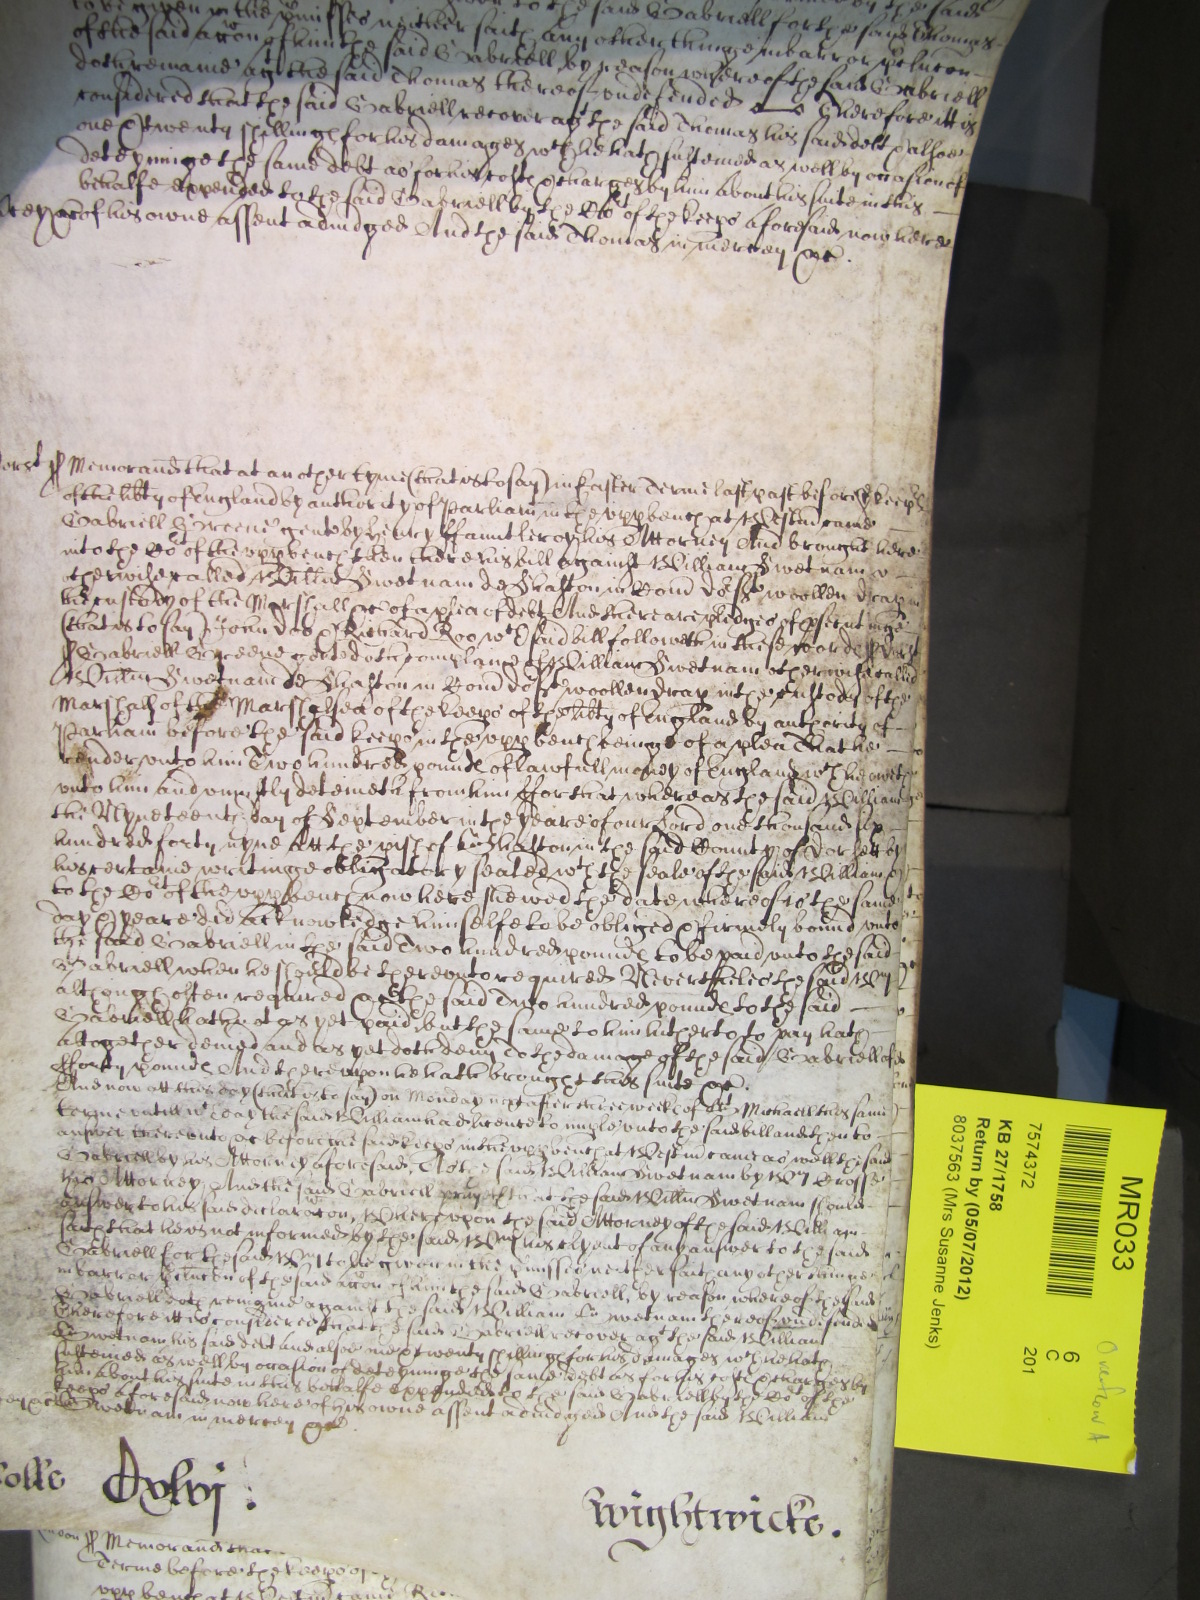 to be given in the p'misses neither saith any other thinge in barr or p'clucon
of the said accon of him the said Gabriell by reason whereof the said Gabriell
doth remaine agt the said Thomas thereof undefended Therefore itt is
considered that the said Gabriell recover agt the said Thomas his said debt & alsoe
one & twenty shillings for his damages wch he hath susteined as well by occasion of
deteyninge the same debt as for his costs & charges by him about his suite in this
behalfe expended to the said Gabriell by the Cort of the keeps aforesaid now here
of his owne assent adiudged And the said Thomas in mercy &c.
Dorst Memorand that at another tyme (that is to say) in Easter Terme last past before ye keeps
of the libty of England by authority of Parliam in the upp bench at Westm came
Gabriell Greene gent by Henry ffauntleroy his Attorney And brought here
into the Cort of the upp bench then there his bill against William Swetnam
otherwise called Willm Swetnam de Shafton in Com Dorst woollen drap in
the custody of the Marshall &c of a plea of debt And there are pledges of psecutinge
(that is to say) John Doo & Richard Roo wch said bill followeth in these words
Gabriell Greene gent doth complaine of William Swetnam otherwise called
Willm Swetnam de Shafton in Com Dorst woollen drap in the custody of the
Marshall of the Marshalsea of the keeps of the libty of England by authority of
Parliam before the said keeps in the upp bench beinge of a plea That he
render unto him Two hundred pounds of lawfull money of England wch he oweth
unto him and uniustly deteineth from him ffor that whereas the said William
the Nyneteenth day of September in the yeare of our Lord one thousand six
hundred forty nyne Att the pish of Shafton in the said County of Dorsett by
his certaine writinge obligatory sealed wth the seale of the said William &
to the Cort of the upp bench now here shewed the date whereof is the same
day & yeare did acknowledge himselfe to be obliged & firmely bound unto
the said Gabriell in the said Two hundred pounds to be paid unto the said
Gabriell when he should be thereunto required Neverthelesse the said Wm
although often required &c the said Two hundred pounds to the said
Gabriell hath not as yet paid but the same to him hitherto to pay hath
altogether denied and as yet doth deny To the damage of the said Gabriell of
fforty pounds And thereupon he hath brought this suite &c.
And now att this day (that is to say) on Monday next after three weeks of St Michaell this same
terme untill wch day the said William had licence to imple unto the said bill and then to
answer thereunto &c before the said keeps in the upp bench at Westm came as well the said
Gabriell by his Attorney aforesaid, As the said William Swetnam by Wm Crosse
his Attorney, And the said Gabriell prayeth that the said Willm Swetnam should
answer to his said declaracon, Whereupon the said Attorney of the said William
saith that he is not informed by the said Wm his clyent of any answer to the said
Gabriell for the said Wm to be given in the p'misses neither saith any other thinge
in barr or p'clucon of the said accon of him the said Gabriell, by reason whereof the said
Gabriell doth remaine against the said William Swetnam thereof undefended
Therefore itt is considered that the said Gabriell recover agt the said William
Swetnam his said debt and alsoe one & twenty shillings for his damages wch he hath
susteined as well by occasion of deteyninge the same debt as for his costs & charges by
him about his suite in this behalfe expended to the said Gabriell by the Cort of the
keeps aforesaid now here of his owne assent adiudged And the said William
Swetnam in mercy &c
Rolle Dxlvj.
Wightwicke.
Memorand that
Terme before the keeps of
upp bench at Westm came
MR033
7574372
6
C
201
KB 27/1758
Return by (05/07/2012)
8037563 (Mrs Susanne Jenks)
Overflow A